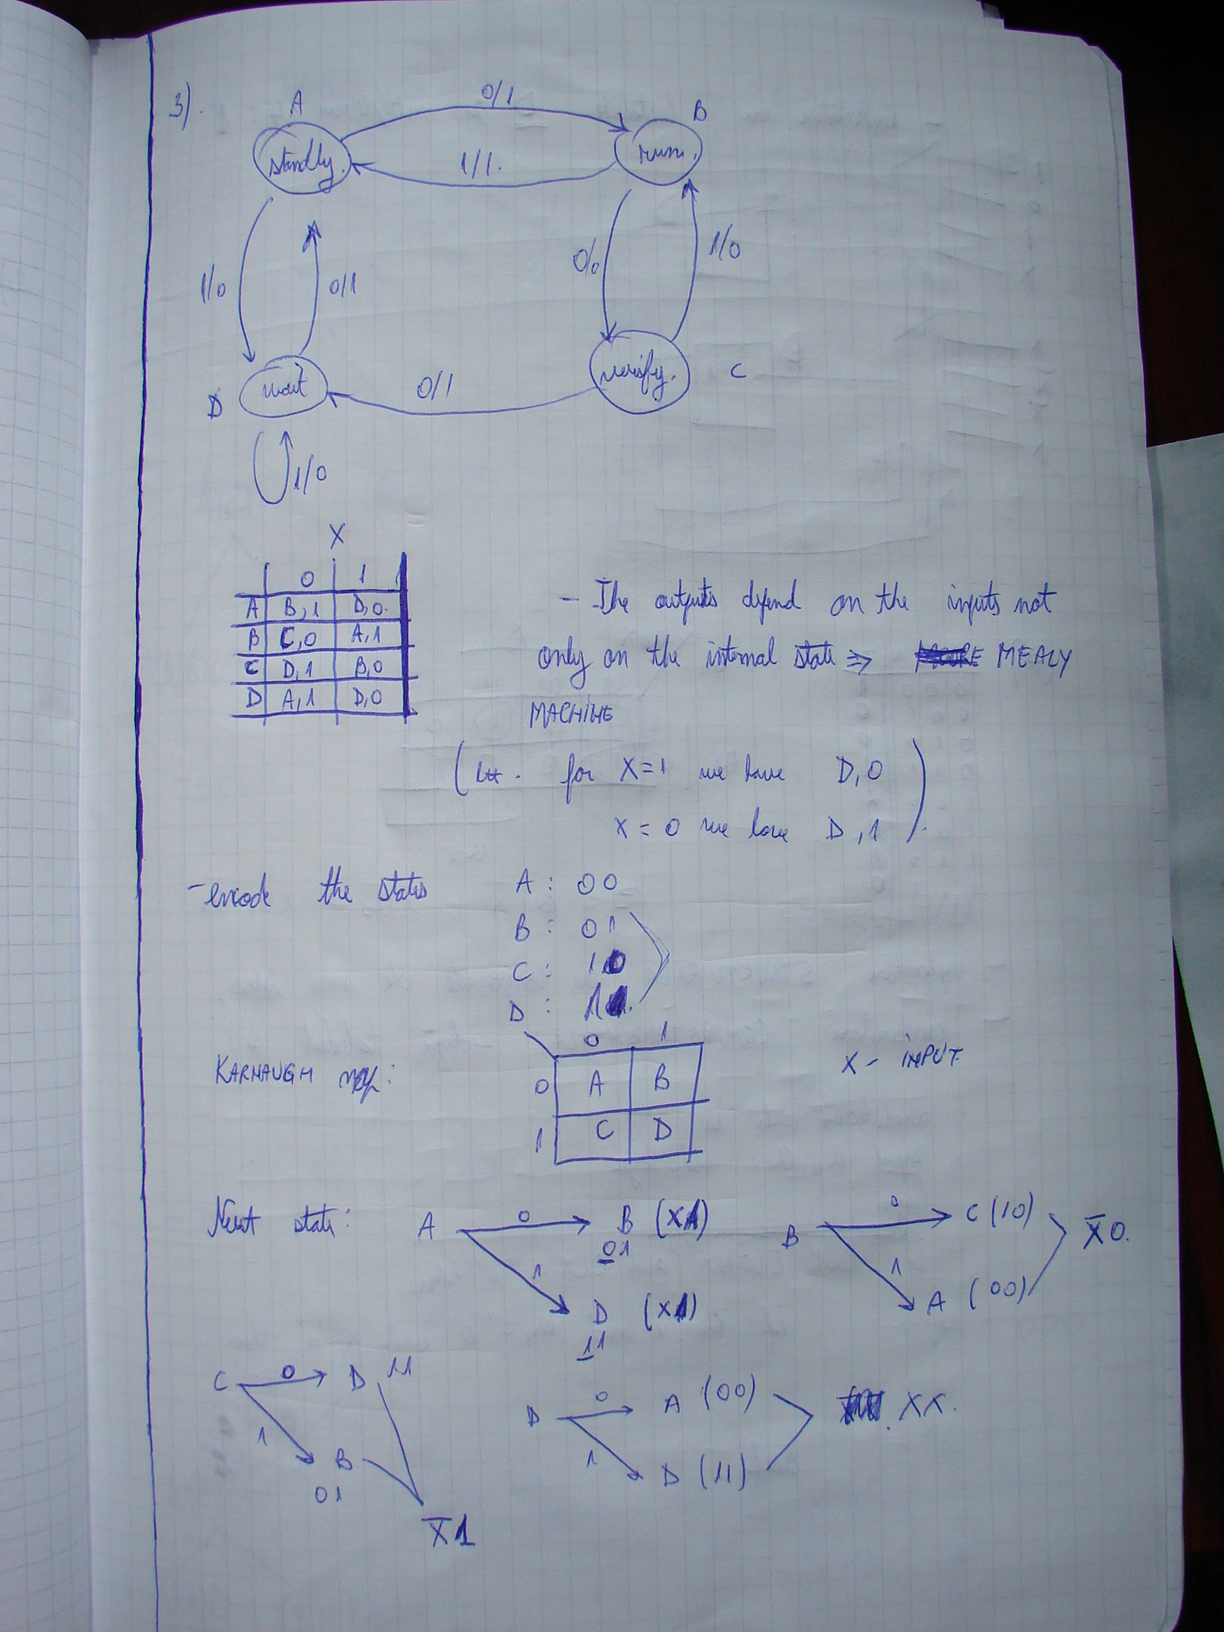 3).
A
0/1
B
standby.
1/1.
run.
1/0
0/1
0/0
1/0
wait
0/1
verify.
C
D
1/0
X
0 1
A B,1 D,0.
B C,0 A,1
C D,1 B,0
D A,1 D,0
- The outputs depend on the inputs not
only on the internal state ⇒ MEALY
MACHINE
( for X=1 we have D,0
X = 0 we have D,1 ).
- encode the states
A: 00
B: 01
C: 10
D: 11.
KARNAUGH map:
0 1
0 A B
1 C D
X - INPUT
Next state:
A 0 B (X1)
01
1 D (X1)
11
B 0 C (10)
1 A (00)
X̅0.
C 0 D 11
1 B
01
X̅1
D 0 A (00)
1 D (11)
XX.